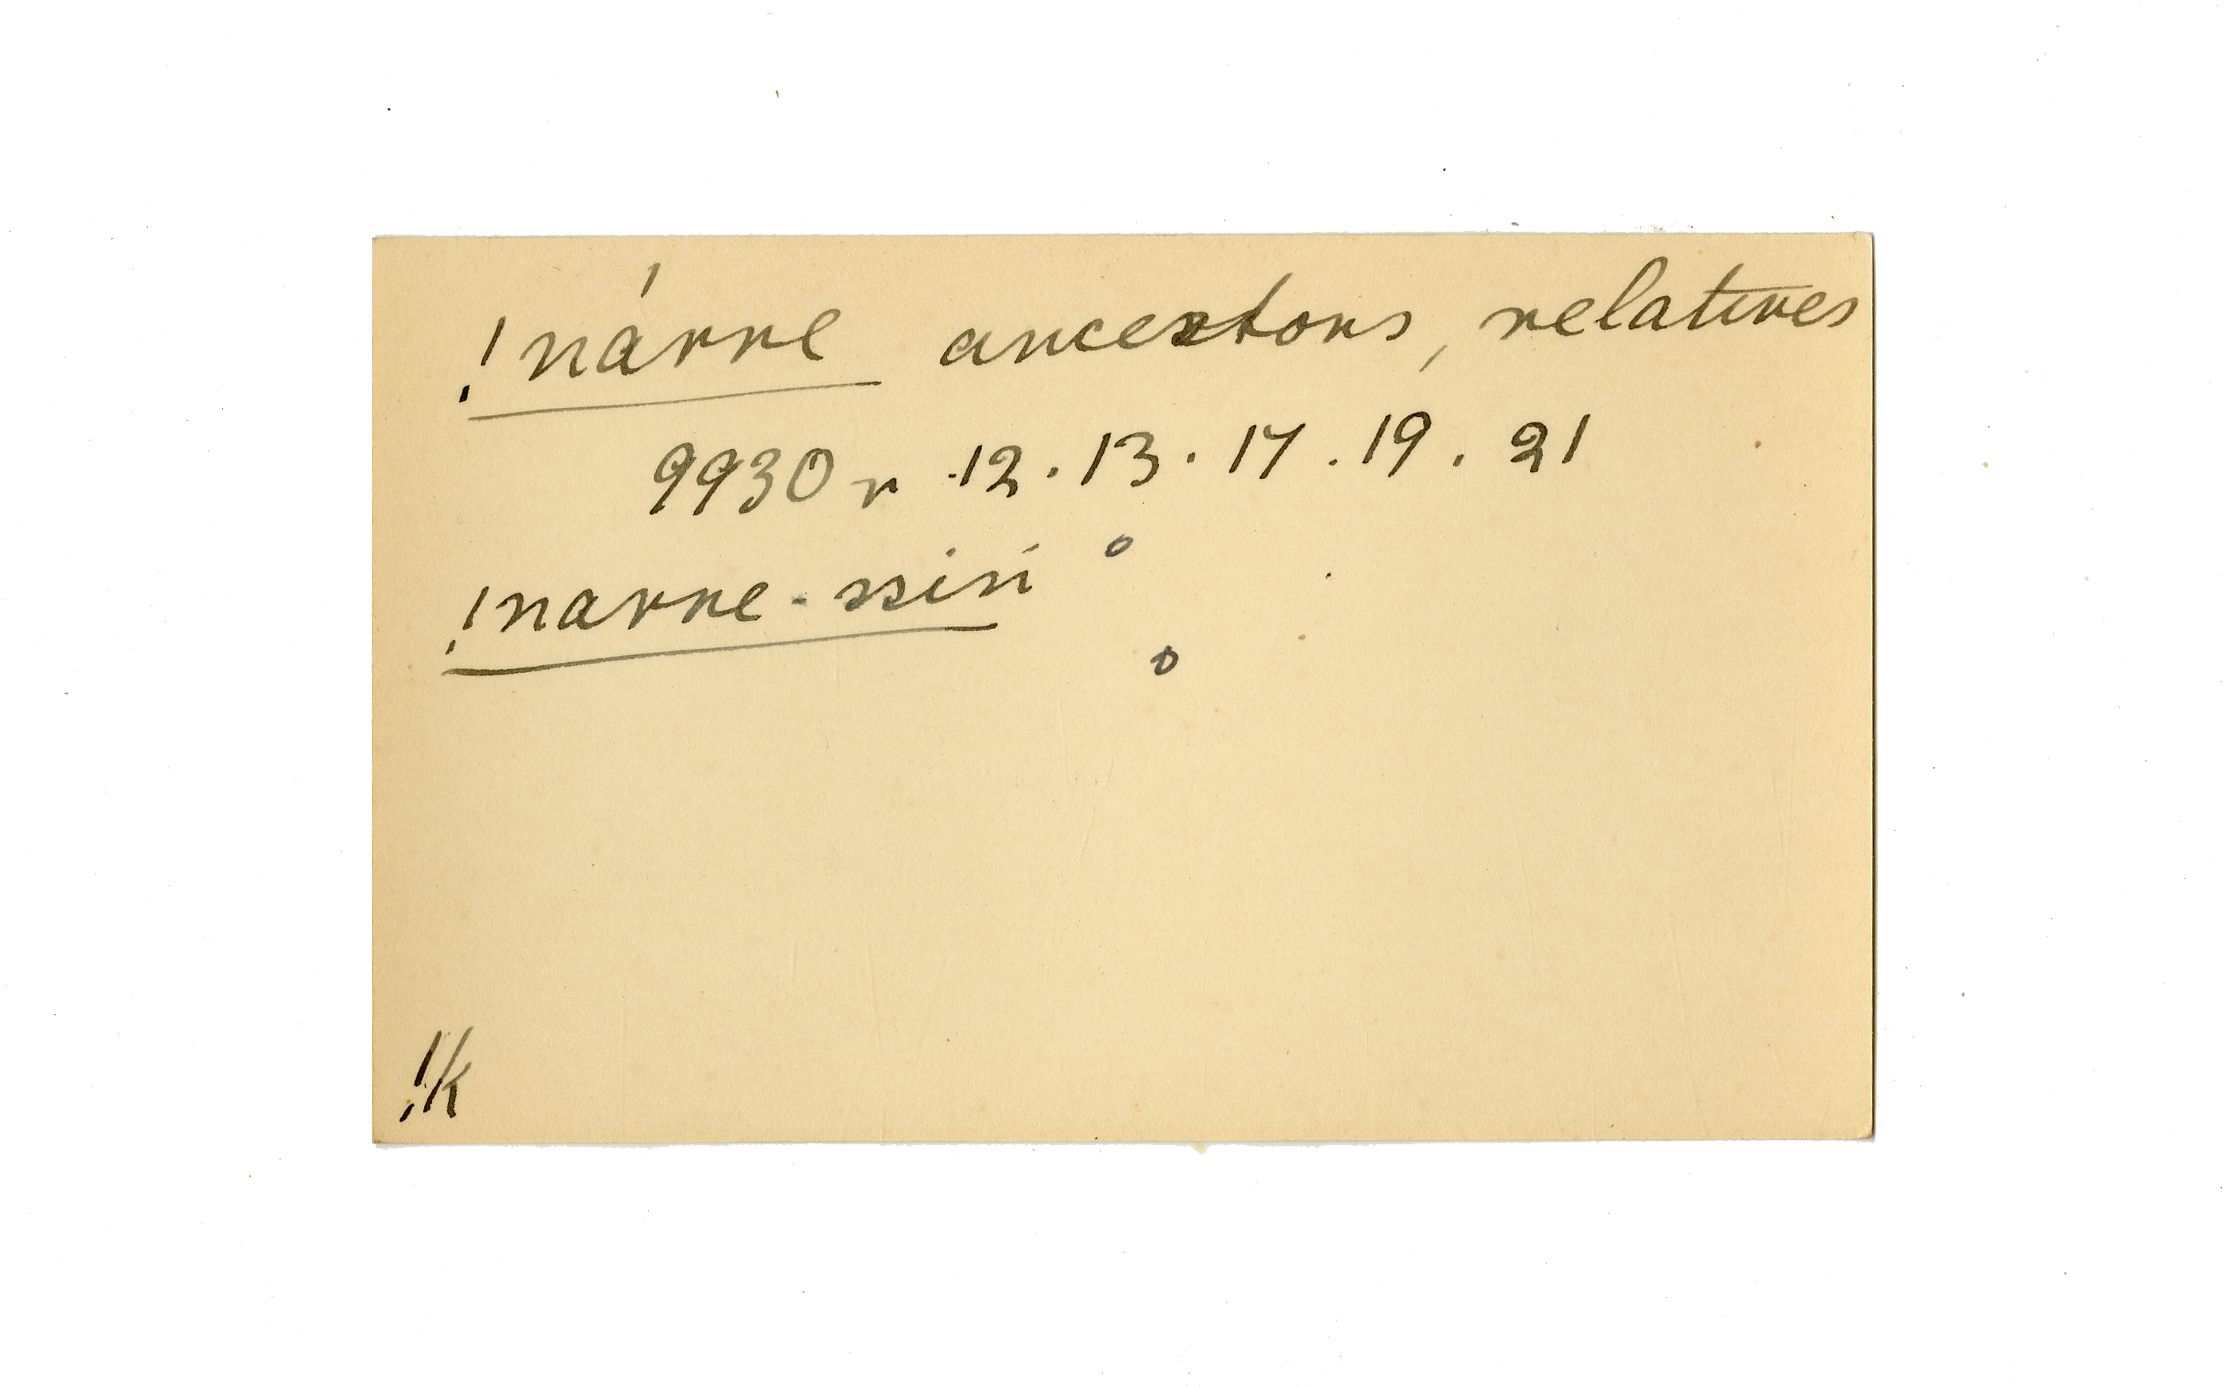 !nárre ancestors, relatives
9930 r .12 . 13 . 17 . 19 . 21
!narre-ssiri
!k